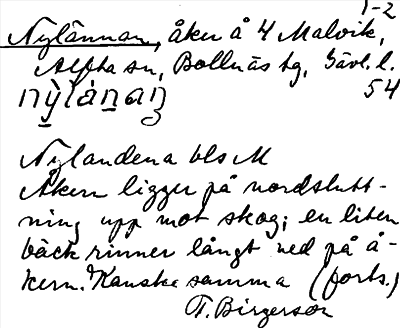 1-2
Nylännan, åker å 4 Malvik,
Alfta sn, Bollnäs tg, Gävl. l.
54
Nylandena bls M
Åkern ligger på nordslutt-
ning upp mot skog; en liten
bäck rinner långt ned på å-
kern. Kanske samma (forts.)
T. Birgerson